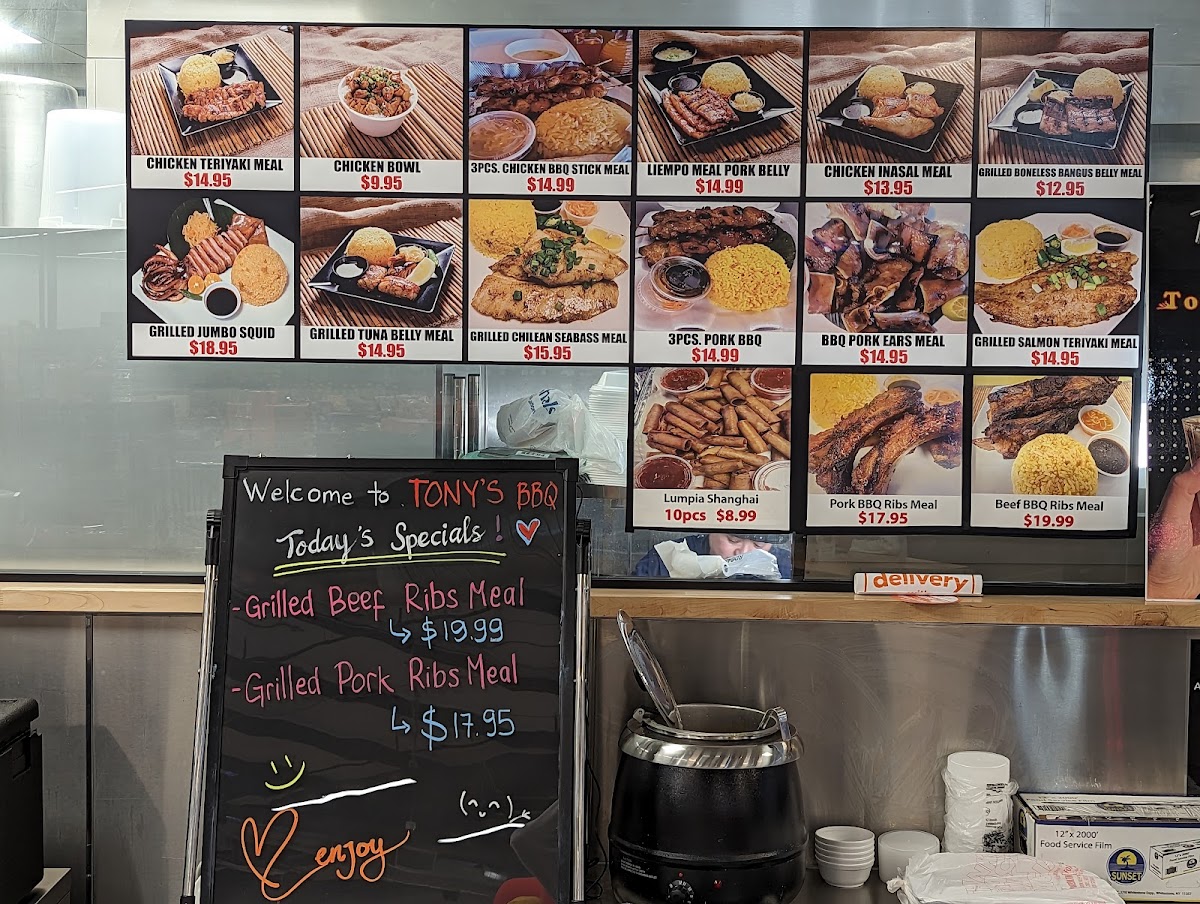 CHICKEN TERIYAKI MEAL
$14.95
CHICKEN BOWL
$9.95
3PCS. CHICKEN BBQ STICK MEAL
$14.99
LIEMPO MEAL PORK BELLY
$14.99
CHICKEN INASAL MEAL
$13.95
GRILLED BONELESS BANGUS BELLY MEAL
$12.95
GRILLED JUMBO SQUID
$18.95
GRILLED TUNA BELLY MEAL
$14.95
GRILLED CHILEAN SEABASS MEAL
$15.95
3PCS. PORK BBQ
$14.99
BBQ PORK EARS MEAL
$14.95
GRILLED SALMON TERIYAKI MEAL
$14.95
Lumpia Shanghai
10pcs $8.99
Pork BBQ Ribs Meal
$17.95
Beef BBQ Ribs Meal
$19.99
Welcome to TONY'S BBQ
Today's Specials!
-Grilled Beef Ribs Meal
↳ $19.99
-Grilled Pork Ribs Meal
↳ $17.95
enjoy
delivery
12" x 2000'
Food Service Film
SUNSET